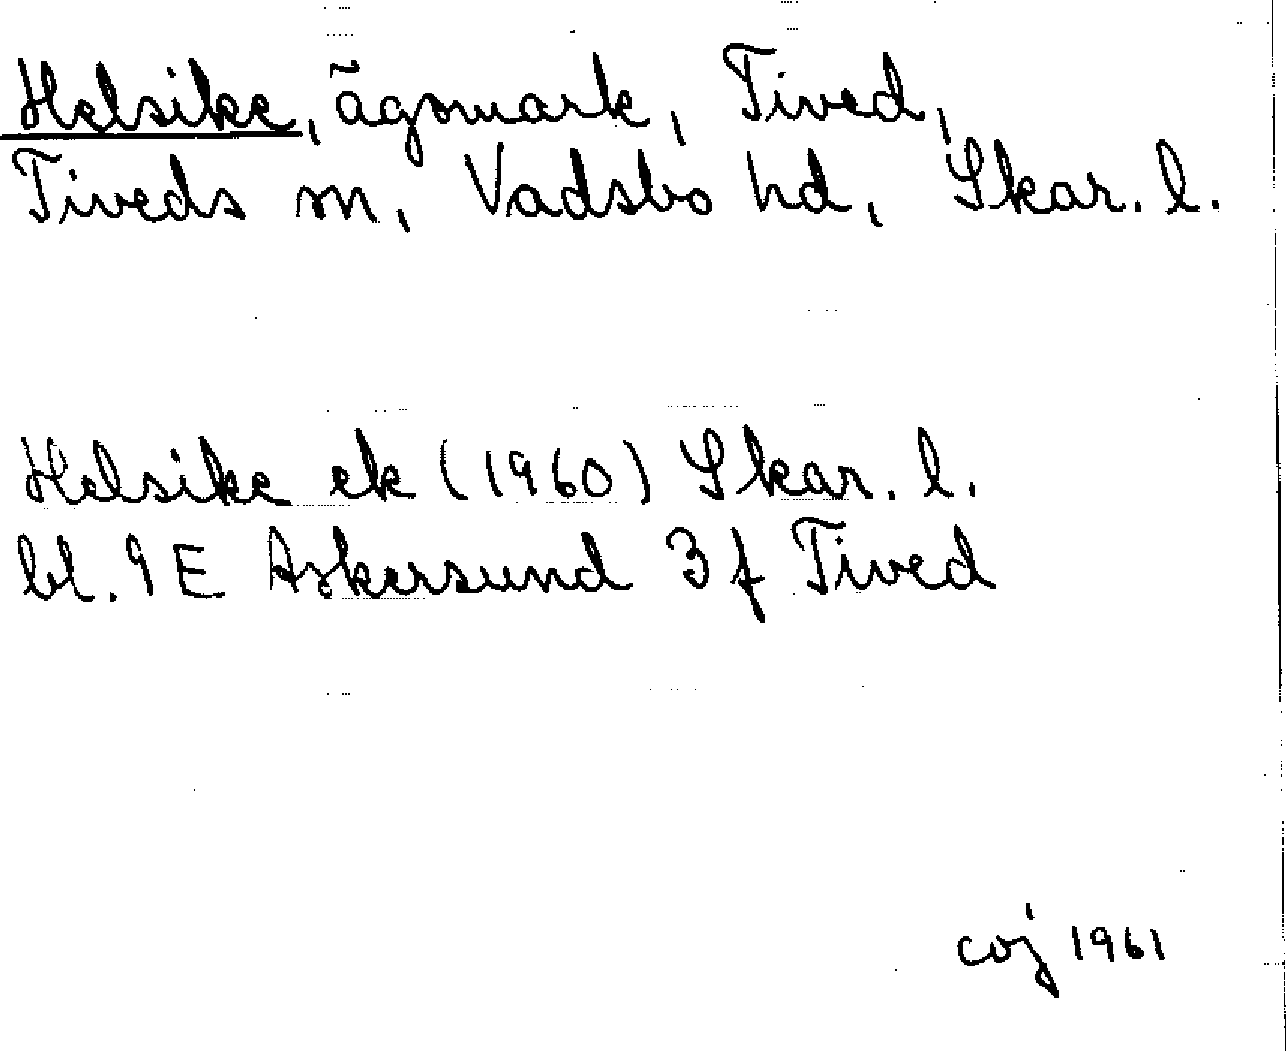 Helsike, ägomark, Tived,
Tiveds sn, Vadsbo hd, Skar. l.
Helsike ek (1960) Skar. l.
bl. 9E Askersund 3f Tived
coj 1961